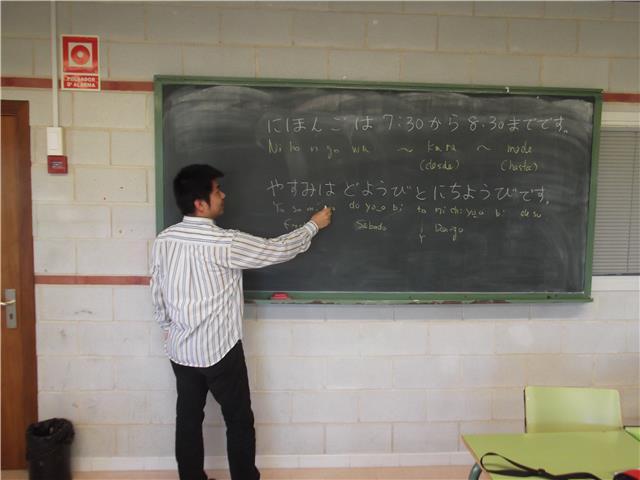 POLSADOR
D'ALARMA
にほんごは 7:30から 8.30までです。
Ni ho n go wa ~ Kara ~ made
(desde) (hasta)
やすみは どようびと にちようびです。
Ya su mi do yo o bi to ni chi yo u bi de su
Sábado y Domingo